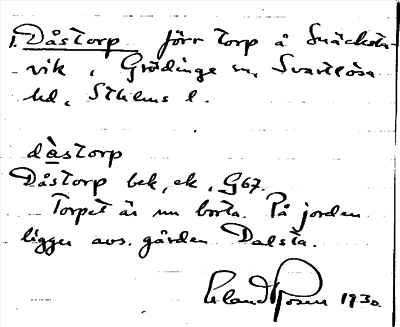 1. Dåstorp förr torp å Snäcksta-
vik, Grödinge sn, Svartlösa
hd, Sthlms l.
dàstorp
Dåstorp bek, ek, G67.
Torpet är nu borta. På jorden
ligger avs. gården Dalsta.
Erland Rosén 1930.